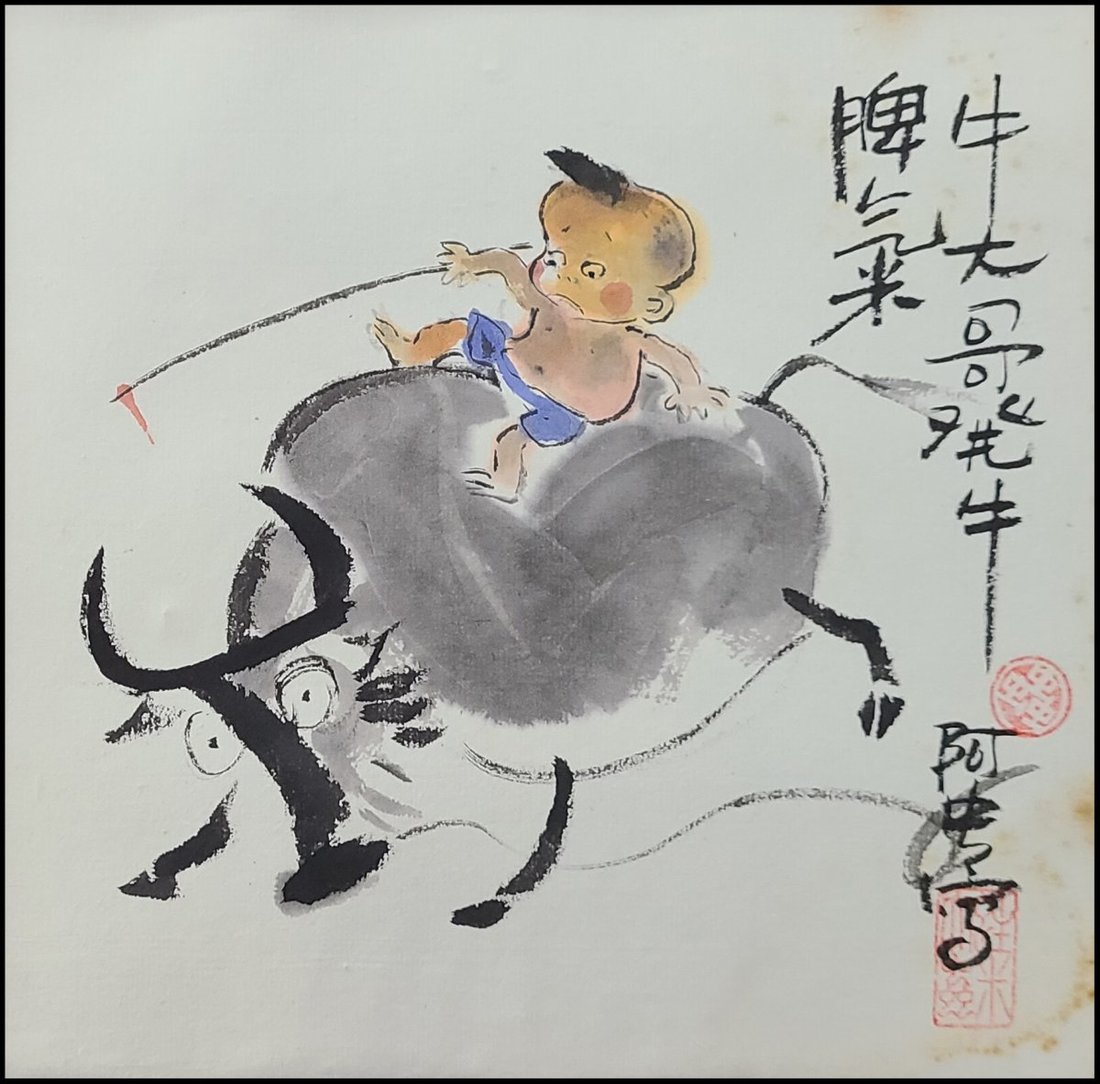 牛大哥發牛
脾氣
阿忠寫